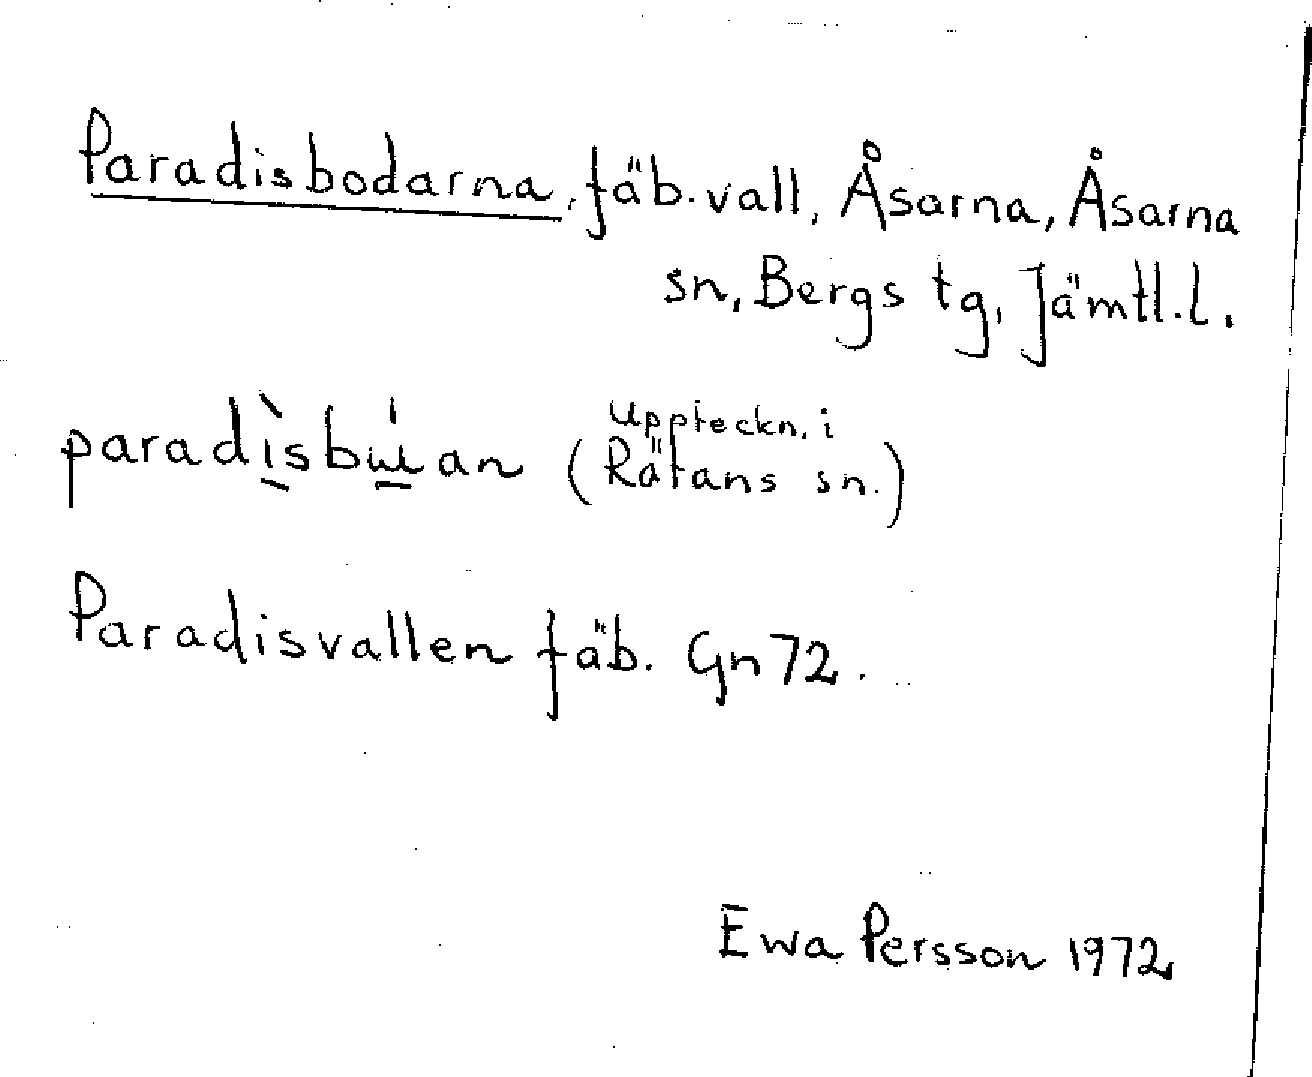 Paradisbodarna, fäb.vall, Åsarna, Åsarna
sn, Bergs tg, Jämtl.l.
paradìsbúan (Uppteckn. i
Rätans sn.)
Paradisvallen fäb. Gn 72.
Ewa Persson 1972